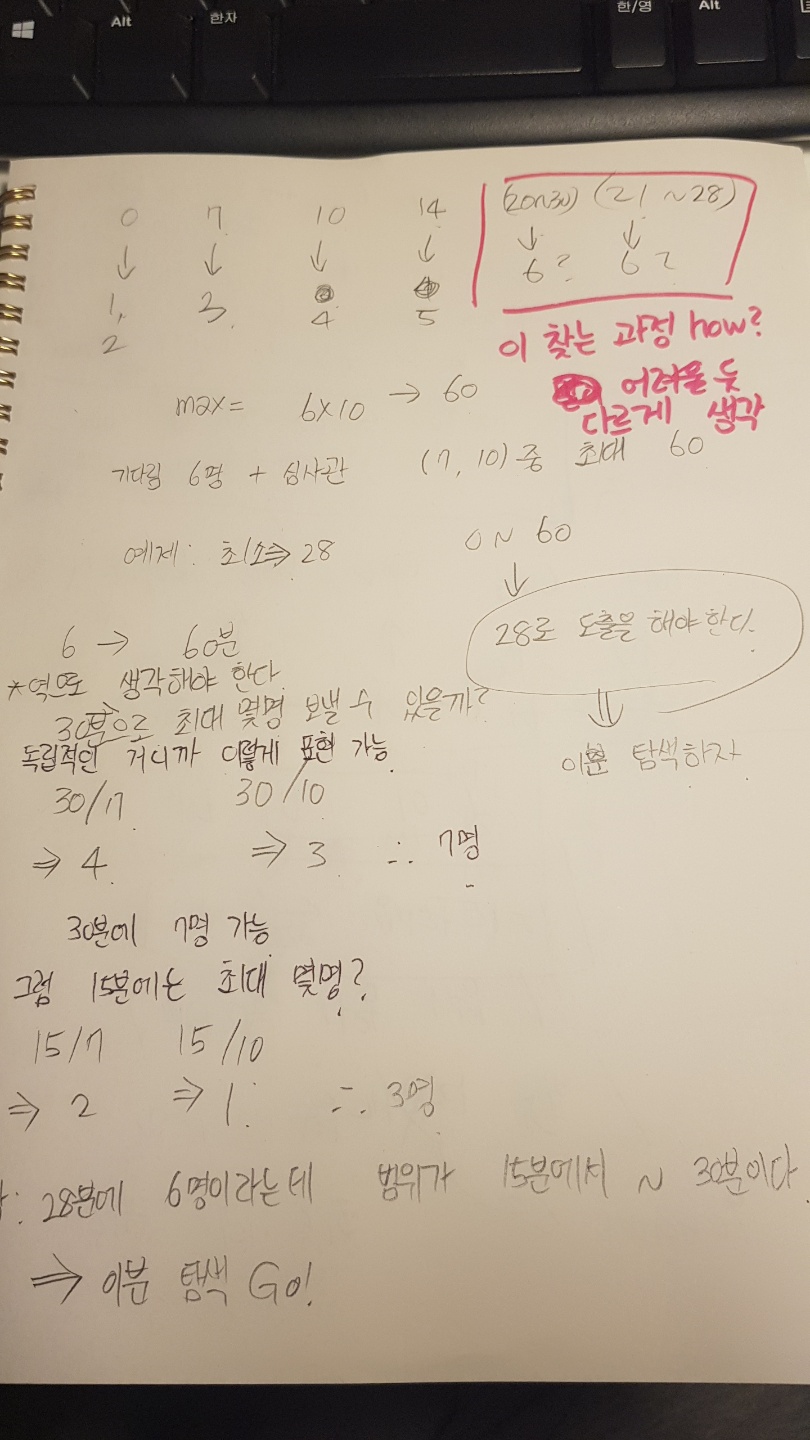 Alt
한자
한/영
Alt
0 7 10 14
↓ ↓ ↓ ↓
1, 3 4 5
2
(20~30) (21 ~28)
↓ ↓
6? 6?
이 찾는 과정 how?
어려울 듯
다르게 생각
max= 6X10 → 60
기다림 6명 + 심사관 (7, 10) 중 최대 60
예제: 최소⇒ 28
0 ~ 60
↓
28로 도출을 해야 한다.
⇓
이분 탐색하자
6 → 60분
*역으로 생각해야 한다
30분으로 최대 몇명 보낼 수 있을까?
독립적인 거니까 이렇게 표현 가능.
30/7 30/10
⇒ 4. ⇒ 3. ∴ 7명
30분에 7명 가능
그럼 15분에는 최대 몇명?
15/7 15/10
⇒ 2 ⇒ 1. ∴ 3명
: 28분에 6명이라는데 범위가 15분에서 ~ 30분이다.
⇒ 이분 탐색 Go!